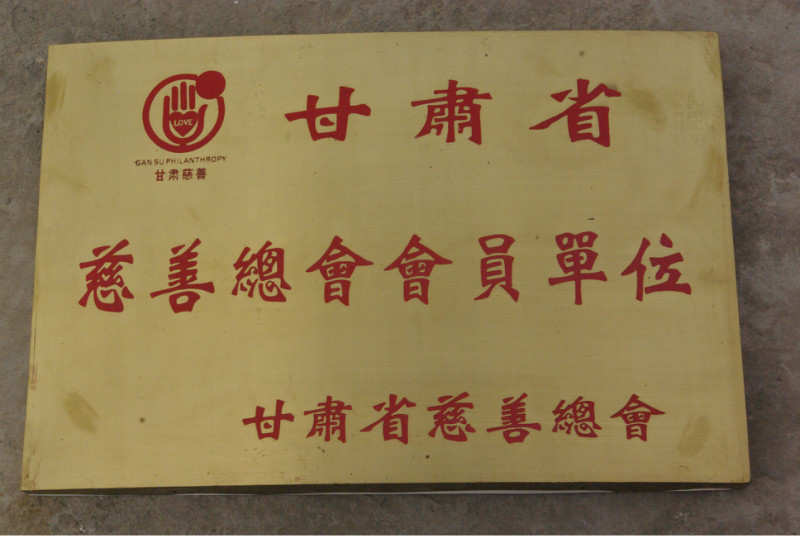 LOVE
GANSU PHILANTHROPY
甘肃慈善
甘肅省
慈善總會會員單位
甘肅省慈善總會